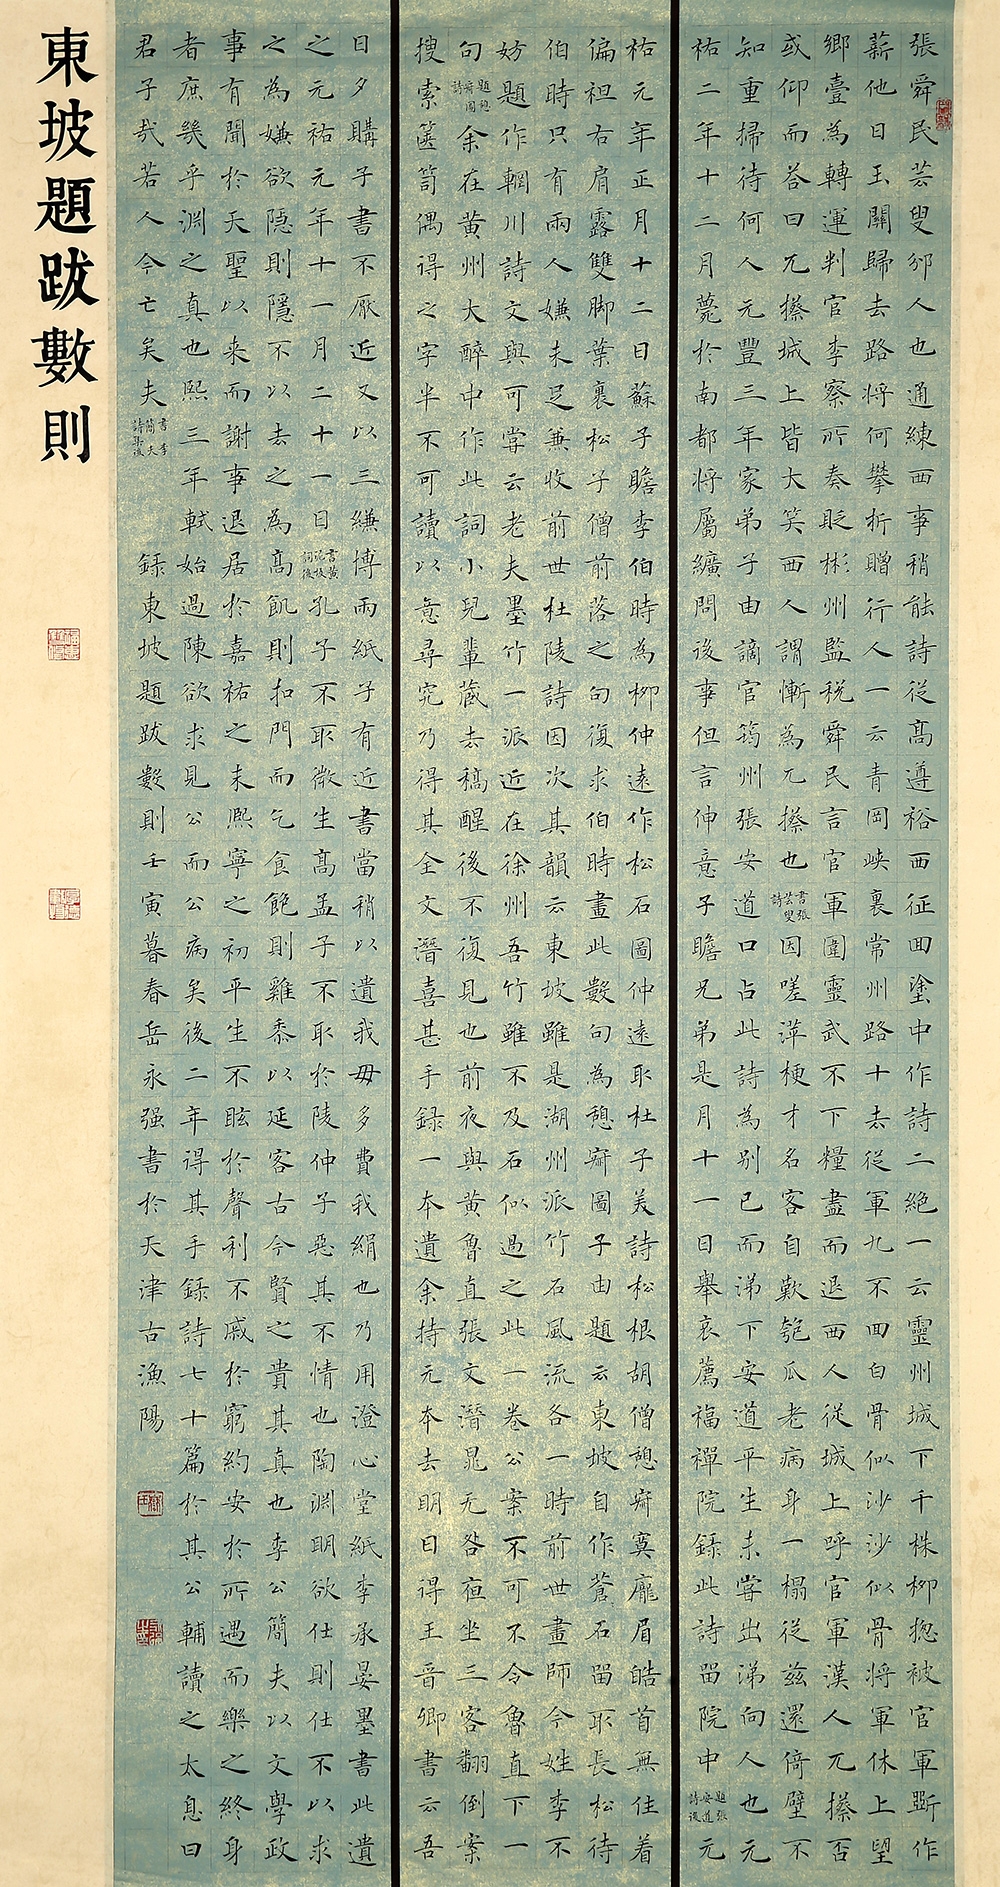 張舜民芸叟邠人也通練西事稍能詩從高遵裕西征回塗中作詩二絶一云靈州城下千株柳揔被官軍斫作
薪他日玉關歸去路將何攀折贈行人一云青岡峽裏常州路十去從軍九不回白骨似沙沙似骨將軍休上望
鄉臺為轉運判官李察所奏貶彬州監税舜民言官軍圍靈武不下糧盡而退西人從城上呼官軍漢人兀攃否
或仰而荅曰兀攃城上皆大笑西人謂慚為兀攃也書張芸叟詩因嗟萍梗才名客自歎匏瓜老病身一榻從兹還倚壁不
知重掃待何人元豐三年家弟子由謫官筠州張安道口占此詩為别已而涕下安道平生未嘗出涕向人也元
祐二年十二月薨於南都將屬纊問後事但言伸意子瞻兄弟是月十一日舉哀薦福禪院録此詩留院中題張安道詩後元
祐元年正月十二日蘇子瞻李伯時為柳仲遠作松石圖仲遠取杜子美詩松根胡僧憩寂寞龐眉皓首無住着
偏袒右肩露雙脚葉裏松子僧前落之句復求伯時畫此數句為憩寂圖子由題云東坡自作蒼蒼石留取長松待
伯時只有兩人嫌未足兼收前世杜陵詩因次其韻云東坡雖是湖州派竹石風流各一時前世畫師今姓李不
妨題作輞川詩文與可嘗云老夫墨竹一派近在徐州吾竹雖不及石似過之此一卷公案不可不令魯直下一
句題憩寂圖詩余在黄州大醉中作此詞小兒輩藏去稿醒後不復見也前夜與黄魯直張文潛晁无咎夜坐三客翻倒案
搜索篋笥偶得之字半不可讀以意尋究乃得其全文潛喜甚手録一本遺余持元本去明日得王晉卿書云吾
日夕購子書不厭近又以三縑博兩紙子有近書當稍以遺我毋多費我絹也乃用澄心堂紙李承晏墨書此遺
之元祐元年十一月二十一日書黄泥坂詞後孔子不取微生高孟子不取於陵仲子惡其不情也陶淵明欲仕則仕不以求
之為嫌欲隱則隱不以去之為高飢則扣門而乞食飽則雞黍以延客古今賢之貴其真也李公簡夫以文學政
事有聞於天聖以来而謝事退居於嘉祐之末熙寧之初平生不眩於聲利不戚於窮約安於所遇而樂之終身
者庶幾乎淵之真也熙三年軾始過陳欲求見公而公病矣後二年得其手録詩七十篇於其公輔讀之太息曰
君子㢤若人今亡矣夫書李簡夫詩集後 録東坡題跋數則壬寅暮春岳永强書於天津古漁陽
東坡題跋數則